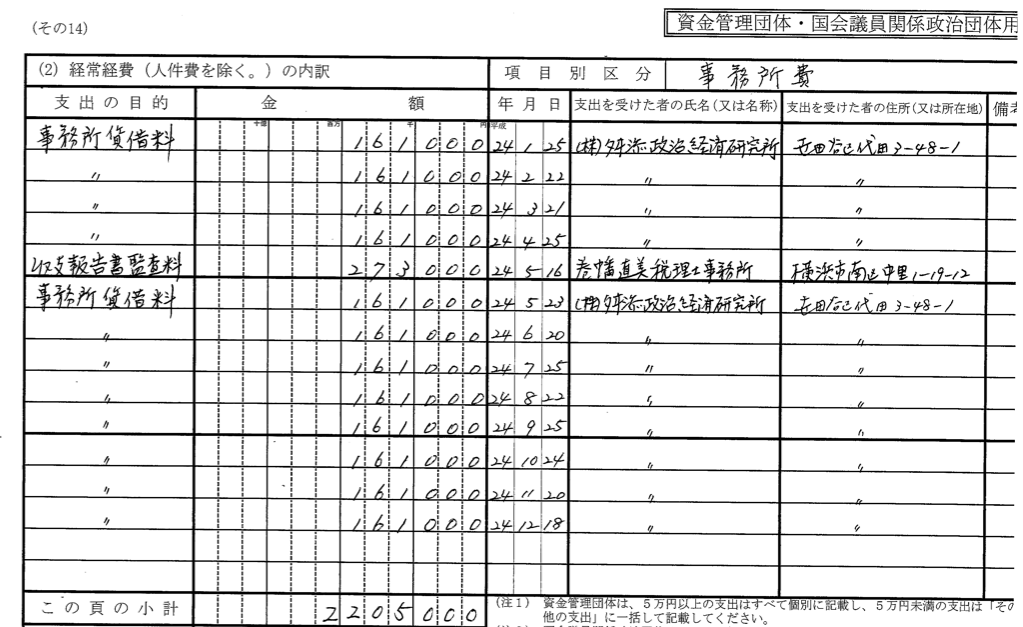 (その14)
資金管理団体・国会議員関係政治団体用
(2) 経常経費(人件費を除く。)の内訳 項目別区分 事務所費
支出の目的 金額 年月日 支出を受けた者の氏名(又は名称) 支出を受けた者の住所(又は所在地) 備考
十億 百万 千 円 平成
事務所賃借料 161000 24 1 25 (株) 政治経済研究所 代田3-48-1
〃 161000 24 2 22 〃 〃
〃 161000 24 3 21 〃 〃
〃 161000 24 4 25 〃 〃
収支報告書監査料 273000 24 5 16 直美税理士事務所 横浜市南区中里1-19-12
事務所賃借料 161000 24 5 23 (株) 政治経済研究所 代田3-48-1
〃 161000 24 6 20 〃 〃
〃 161000 24 7 25 〃 〃
〃 161000 24 8 22 〃 〃
〃 161000 24 9 25 〃 〃
〃 161000 24 10 24 〃 〃
〃 161000 24 11 20 〃 〃
〃 161000 24 12 18 〃 〃
この頁の小計 2205000
(注1) 資金管理団体は、5万円以上の支出はすべて個別に記載し、5万円未満の支出は「その
他の支出」に一括して記載してください。